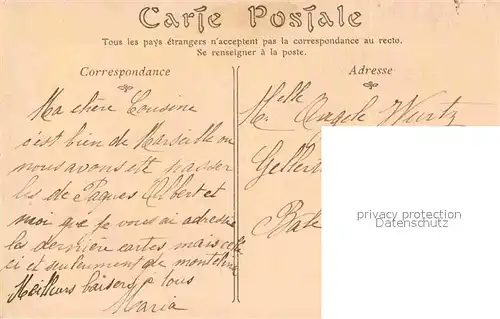 Carte Postale
Tous les pays étrangers n'acceptent pas la correspondance au recto.
Se renseigner à la poste.
Correspondance
Ma chère Cousine
c'est bien de Marseille ou
nous avons été passer
les de Pâques Albert et
moi que je vous ai adressé
la dernière cartes mais celle
ci et seulement de monteline
Meilleurs baisers à tous
Maria
Adresse
Melle Angele Wurtz
Gellert
Bâle
privacy protection
Datenschutz